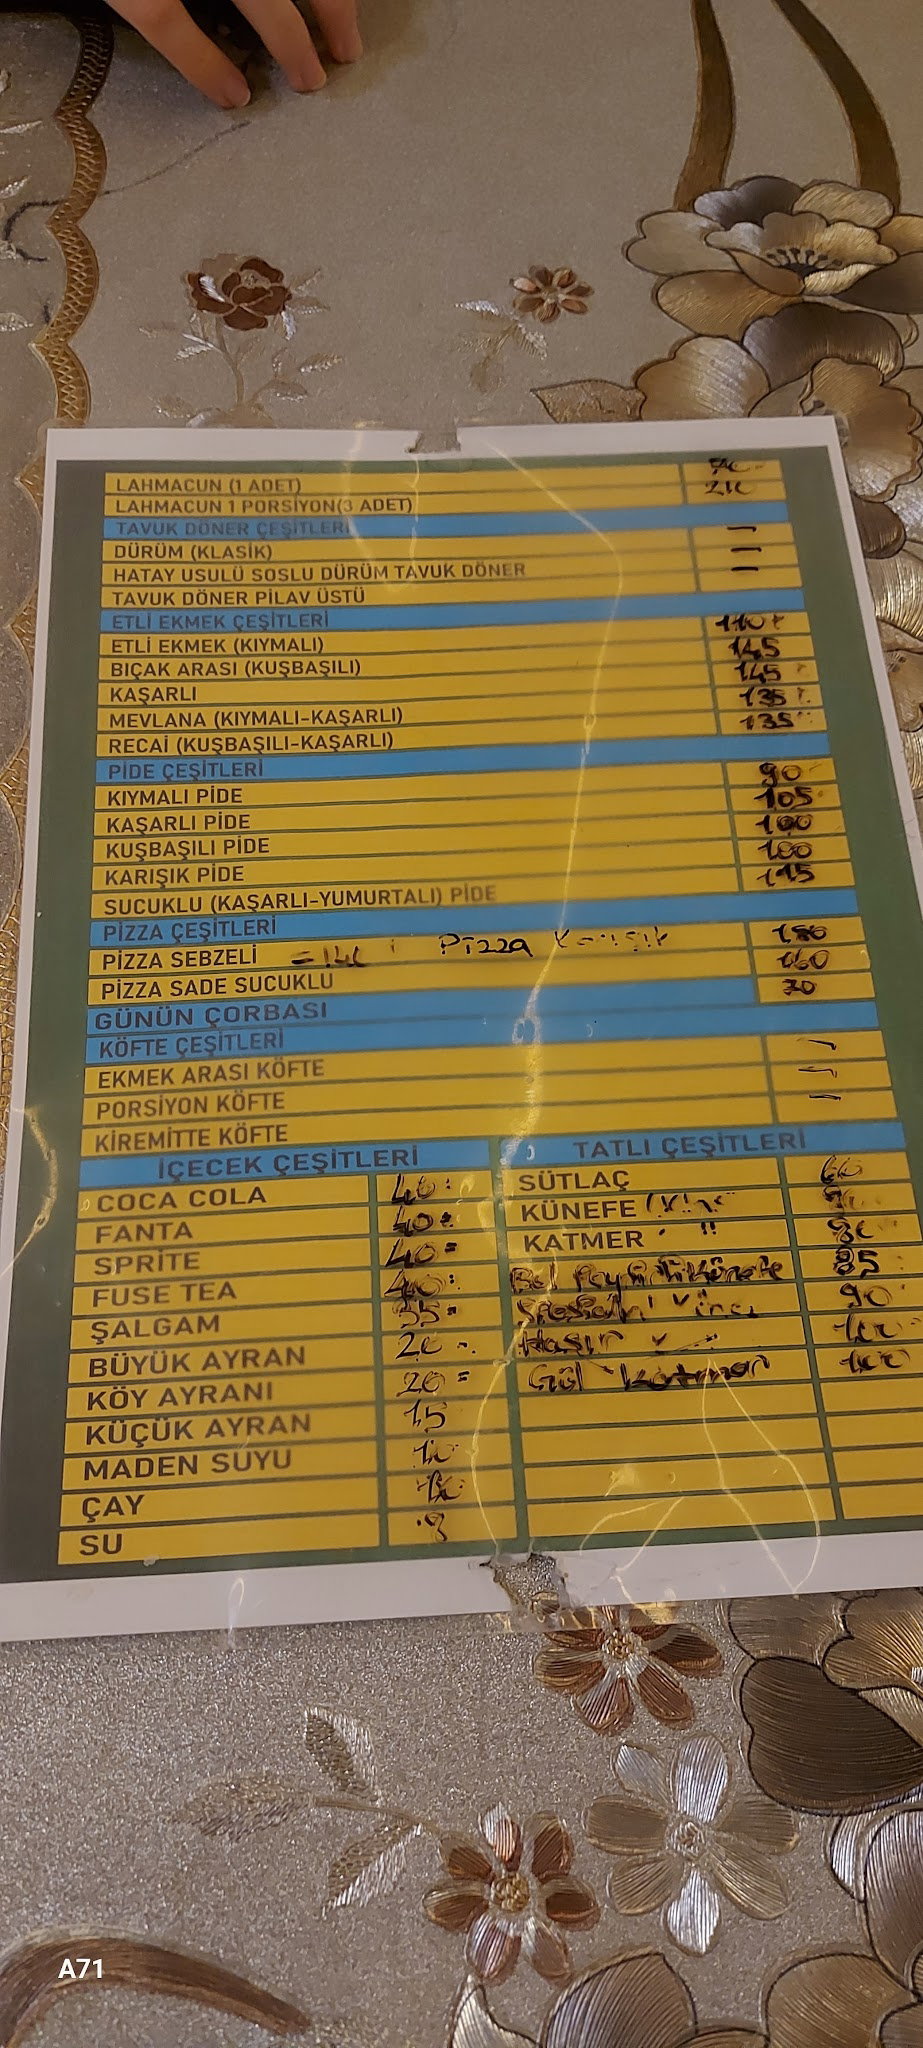 LAHMACUN (1 ADET)
LAHMACUN 1 PORSİYON(3 ADET) 210
TAVUK DÖNER ÇEŞİTLERİ
DÜRÜM (KLASİK) —
HATAY USULÜ SOSLU DÜRÜM TAVUK DÖNER —
TAVUK DÖNER PİLAV ÜSTÜ —
ETLİ EKMEK ÇEŞİTLERİ
ETLİ EKMEK (KIYMALI) 110
BIÇAK ARASI (KUŞBAŞILI) 145
KAŞARLI 145
MEVLANA (KIYMALI-KAŞARLI) 135
RECAİ (KUŞBAŞILI-KAŞARLI) 135
PİDE ÇEŞİTLERİ
KIYMALI PİDE 90
KAŞARLI PİDE 105
KUŞBAŞILI PİDE 100
KARIŞIK PİDE 100
SUCUKLU (KAŞARLI-YUMURTALI) PİDE 115
PİZZA ÇEŞİTLERİ
PİZZA SEBZELİ = 140 Pizza Karışık
PİZZA SADE SUCUKLU 160
GÜNÜN ÇORBASI
KÖFTE ÇEŞİTLERİ
EKMEK ARASI KÖFTE —
PORSİYON KÖFTE —
KİREMİTTE KÖFTE —
İÇECEK ÇEŞİTLERİ
COCA COLA 40
FANTA 40
SPRİTE 40
FUSE TEA 40
ŞALGAM 35
BÜYÜK AYRAN 20
KÖY AYRANI 20
KÜÇÜK AYRAN 15
MADEN SUYU 10
ÇAY
SU
TATLI ÇEŞİTLERİ
SÜTLAÇ 60
KÜNEFE
KATMER
85
90
Hasır 100
Gül Katmer 100
A71